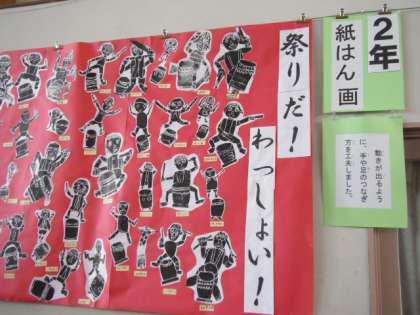 2年
紙はん画
祭りだ！
わっしょい！
動きが出るよう
に、手や足のつなぎ
方を工夫しました。